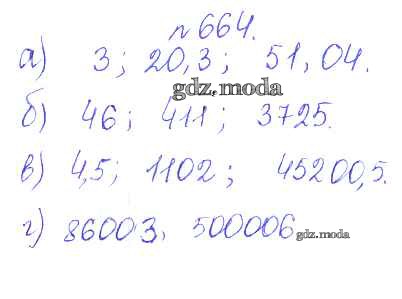 № 664.
а) 3; 20,3; 51,04.
gdz.moda
б) 46; 411; 3725.
в) 4,5; 1102; 45200,5.
г) 86003, 500006
gdz.moda